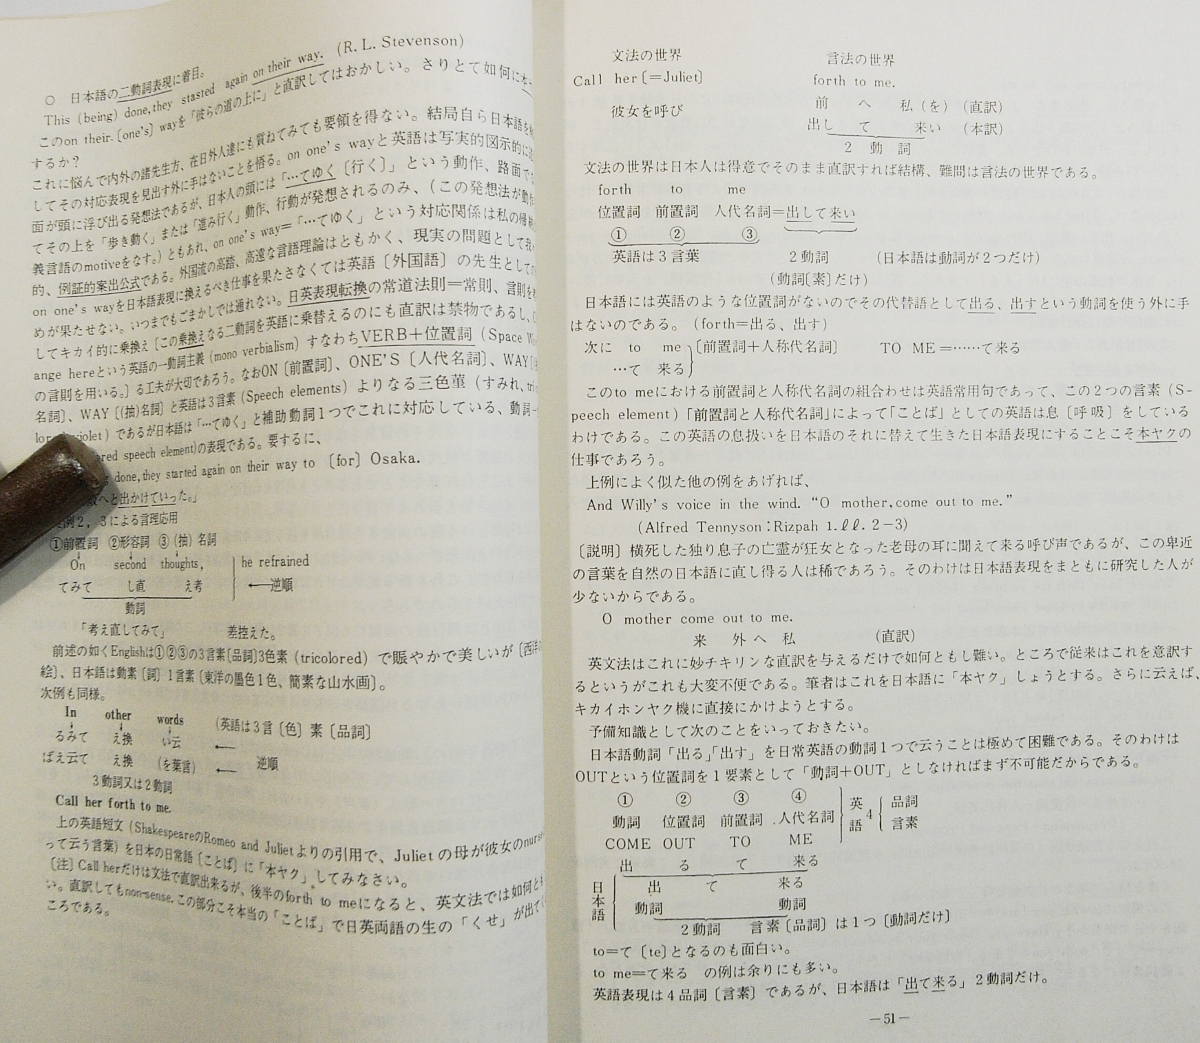 ○ 日本語の二動詞表現に着目。
This (being) done, they stasted again on their way. (R. L. Stevenson)
このon their.〔one's〕wayを「彼らの道の上に」と直訳してはおかしい。さりとて如何に本
するか?
これに悩んで内外の諸先生方、在日外人達にも質ねてみても要領を得ない。結局自ら日本語を
してその対応表現を見出す外に手はないことを悟る。on one's wayと英語は写実的図示的に
面が頭に浮び出る発想法であるが、日本人の頭には「…てゆく〔行く〕」という動作、路面で
てその上を「歩き動く」または「進み行く」動作、行動が発想されるのみ、(この発想法が動
義言語のmotiveをなす。)ともあれ、on one's way=「…てゆく」という対応関係は私の帰
的、例証的案出公式である。外国流の高踏、高遠な言語理論はともかく、現実の問題として我
on one's wayを日本語表現に換えるべき仕事を果たさなくては英語〔外国語〕の先生として
めが果たせない。いつまでもごまかしでは通れない。日英表現転換の常道法則=常則、言則を
してキカイ的に乗換え〔この乗換えなる二動詞を英語に乗替えるのにも直訳は禁物であるし、
ange hereという英語の一動詞主義 (mono verbialism) すなわちVERB+位置詞 (Space W
の言則を用いる。〕る工夫が大切であろう。なおON〔前置詞〕、ONE'S〔人代名詞〕、WAY〔
名詞〕、WAY〔(抽)名詞〕と英語は3言素 (Speech elements) よりなる三色菫 (すみれ、tri
lor violet) であるが日本語は「…てゆく」と補助動詞1つでこれに対応している、動詞一
red speech element)の表現である。要するに、
done, they started again on their way to 〔for〕 Osaka.
へと出かけていった。」
例2, 3による言理応用
①前置詞 ②形容詞 ③(抽)名詞
On second thoughts, he refrained
てみて し直 え考 ←逆順
動詞
「考え直してみて」 差控えた。
前述の如くEnglishは①②③の3言素〔品詞〕3色素 (tricolored) で賑やかで美しいが〔西洋
絵〕、日本語は動素〔詞〕1言素〔東洋の墨色1色、簡素な山水画〕。
次例も同様。
In other words (英語は3言〔色〕素〔品詞〕
るみて え換 い云 ←
ばえ云て え換 (を葉言) ← 逆順
3動詞又は2動詞
Call her forth to me.
上の英語短文 (ShakespeareのRomeo and Julietよりの引用で、Julietの母が彼女のnurse
って云う言葉) を日本の日常語〔ことば〕に「本ヤク」してみなさい。
〔注〕Call herだけは文法で直訳出来るが、後半のforth to meになると、英文法では如何とも
い。直訳してもnon-sense. この部分こそ本当の「ことば」で日英両語の生の「くせ」が出て
ころである。
文法の世界 言法の世界
Call her〔=Juliet〕 forth to me.
彼女を呼び 前 へ 私 (を) (直訳)
出し て 来い (本訳)
2 動 詞
文法の世界は日本人は得意でそのまま直訳すれば結構、難問は言法の世界である。
forth to me
位置詞 前置詞 人代名詞=出して来い
① ② ③
英語は3言葉 2動詞 (日本語は動詞が2つだけ)
(動詞(素)だけ)
日本語には英語のような位置詞がないのでその代替語として出る、出すという動詞を使う外に手
はないのである。(forth=出る、出す)
次に to me 〔前置詞+人称代名詞〕 TO ME=……て来る
…て 来る
このto meにおける前置詞と人称代名詞の組合わせは英語常用句であって、この2つの言素 (S-
peech element)「前置詞と人称代名詞」によって「ことば」としての英語は息〔呼吸〕をしている
わけである。この英語の息扱いを日本語のそれに替えて生きた日本語表現にすることこそ本ヤクの
仕事であろう。
上例によく似た他の例をあげれば、
And Willy's voice in the wind. “O mother, come out to me.”
(Alfred Tennyson : Rizpah 1. ℓℓ. 2-3)
〔説明〕横死した独り息子の亡霊が狂女となった老母の耳に聞えて来る呼び声であるが、この卑近
の言葉を自然の日本語に直し得る人は稀であろう。そのわけは日本語表現をまともに研究した人が
少ないからである。
O mother come out to me.
来 外 へ 私 (直訳)
英文法はこれに妙チキリンな直訳を与えるだけで如何ともし難い。ところで従来はこれを意訳す
るというがこれも大変不便である。筆者はこれを日本語に「本ヤク」しょうとする。さらに云えば、
キカイホンヤク機に直接にかけようとする。
予備知識として次のことをいっておきたい。
日本語動詞「出る」「出す」を日常英語の動詞1つで云うことは極めて困難である。そのわけは
OUTという位置詞を1要素として「動詞+OUT」としなければまず不可能だからである。
① ② ③ ④
動詞 位置詞 前置詞 人代名詞 英語 4 品詞 言素
COME OUT TO ME
出 る て 来る
日本語 出 て 来る
動詞 動詞
2動詞 言素〔品詞〕は1つ〔動詞だけ〕
to=て〔te〕となるのも面白い。
to me=て来る の例は余りにも多い。
英語表現は4品詞〔言素〕であるが、日本語は「出て来る」2動詞だけ。
—51—